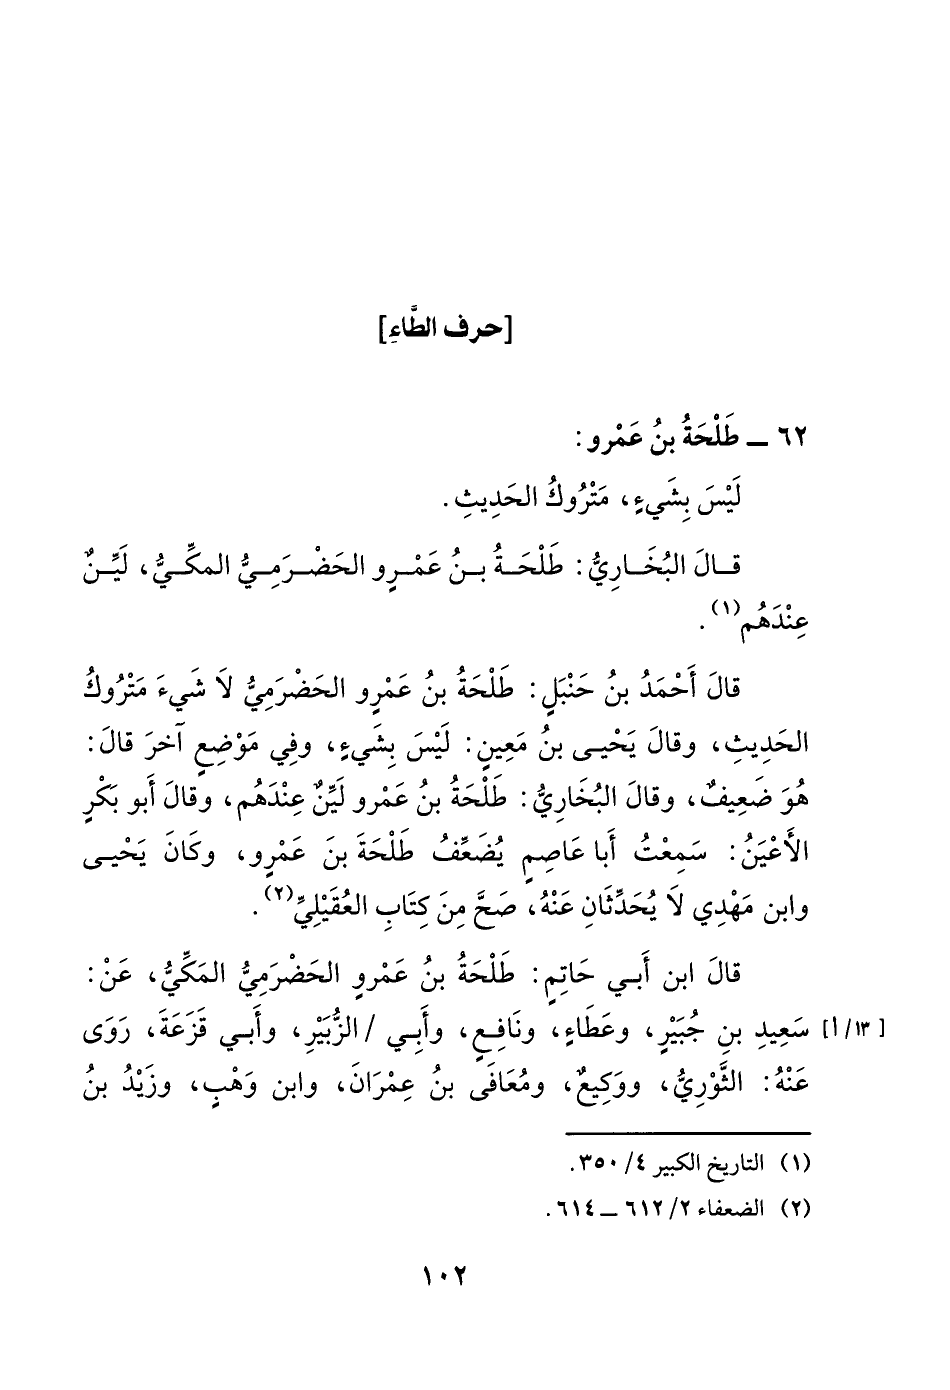 [حرف الطَّاءِ]
٦٢ ــ طَلْحَةُ بنُ عَمْرو:
لَيْسَ بِشَيءٍ، مَتْرُوكُ الحَدِيثِ.
قـالَ البُخَـارِيُّ: طَلْحَـةُ بـنُ عَمْـرٍو الحَضْـرَمِـيُّ المكِّـيُّ، لَيِّـنٌ
عِنْدَهُم(١).
قالَ أَحْمَدُ بنُ حَنْبَلٍ: طَلْحَةُ بنُ عَمْرٍو الحَضْرَمِيُّ لاَ شَيءَ مَتْرُوكُ
الحَدِيثِ، وقالَ يَحْيـى بنُ مَعِينٍ: لَيْسَ بِشَيءٍ، وفِي مَوْضِعٍ آخرَ قالَ:
هُوَ ضَعِيفٌ، وقالَ البُخَارِيُّ: طَلْحَةُ بنُ عَمْرو لَيِّنٌ عِنْدَهُم، وقالَ أَبو بَكْرٍ
الأَعْيَنُ: سَمِعْتُ أَبا عَاصِمٍ يُضَعِّفُ طَلْحَةَ بنَ عَمْرٍو، وكَانَ يَحْيـى
وابن مَهْدِي لاَ يُحَدِّثَانِ عَنْهُ، صَحَّ مِنَ كِتَابِ العُقَيْلِيِّ(٢).
قالَ ابن أَبـي حَاتِمٍ: طَلْحَةُ بنُ عَمْروٍ الحَضْرَمِيُّ المَكِّيُّ، عَنْ:
[١٣/أ] سَعِيدِ بنِ جُبَيْرٍ، وعَطَاءٍ، ونَافِعٍ، وأَبِي / الزُّبَيْرِ، وأَبـي قَزَعَةَ، رَوَى
عَنْهُ: الثَّوْرِيُّ، ووَكِيعٌ، ومُعَافَى بنُ عِمْرَانَ، وابن وَهْبٍ، وزَيْدُ بنُ
(١) التاريخ الكبير ٤/ ٣٥٠.
(٢) الضعفاء ٢/ ٦١٢ ــ ٦١٤.
١٠٢